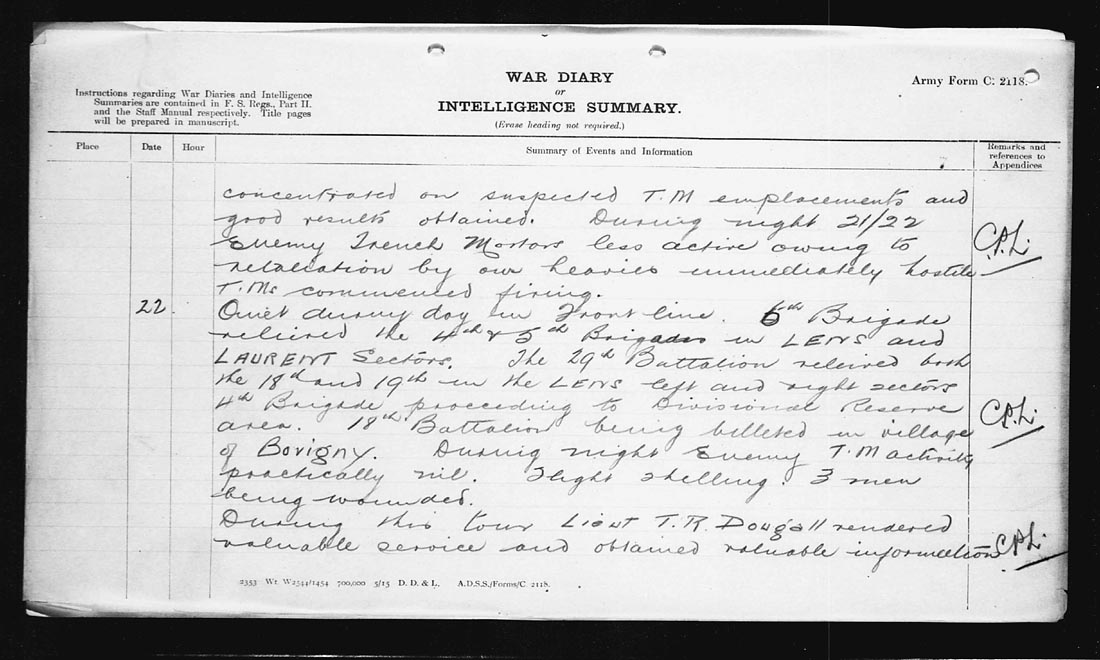 WAR DIARY
or
INTELLIGENCE SUMMARY.
(Erase heading not required.)
Army Form C. 2118.
Instructions regarding War Diaries and Intelligence
Summaries are contained in F. S. Regs., Part II.
and the Staff Manual respectively. Title pages
will be prepared in manuscript.
Place
Date
Hour
Summary of Events and Information
Remarks and
references to
Appendices
concentrated on suspected T.M emplacements and
good results obtained. During night 21/22
Enemy Trench Mortars less active owing to
retaliation by our heavies immediately hostile
T.Ms commenced firing.
22. Quiet during day in Front line. 6th Brigade
relieved the 4th & 5th Brigades in LENS and
LAURENT Sectors. The 29th Battalion relieved both
the 18th and 19th in the LENS left and right sectors
4th Brigade proceeding to Divisional Reserve
area. 18th Battalion being billeted in village
of Bovigny. During night Enemy T.M activity
practically nil. Slight shelling. 3 men
being wounded.
During this tour Lieut T.R. Dougall rendered
valuable service and obtained valuable information
2353 Wt W2544/1454 700,000 5/15 D. D. & L. A.D.S.S./Forms/C. 2118.